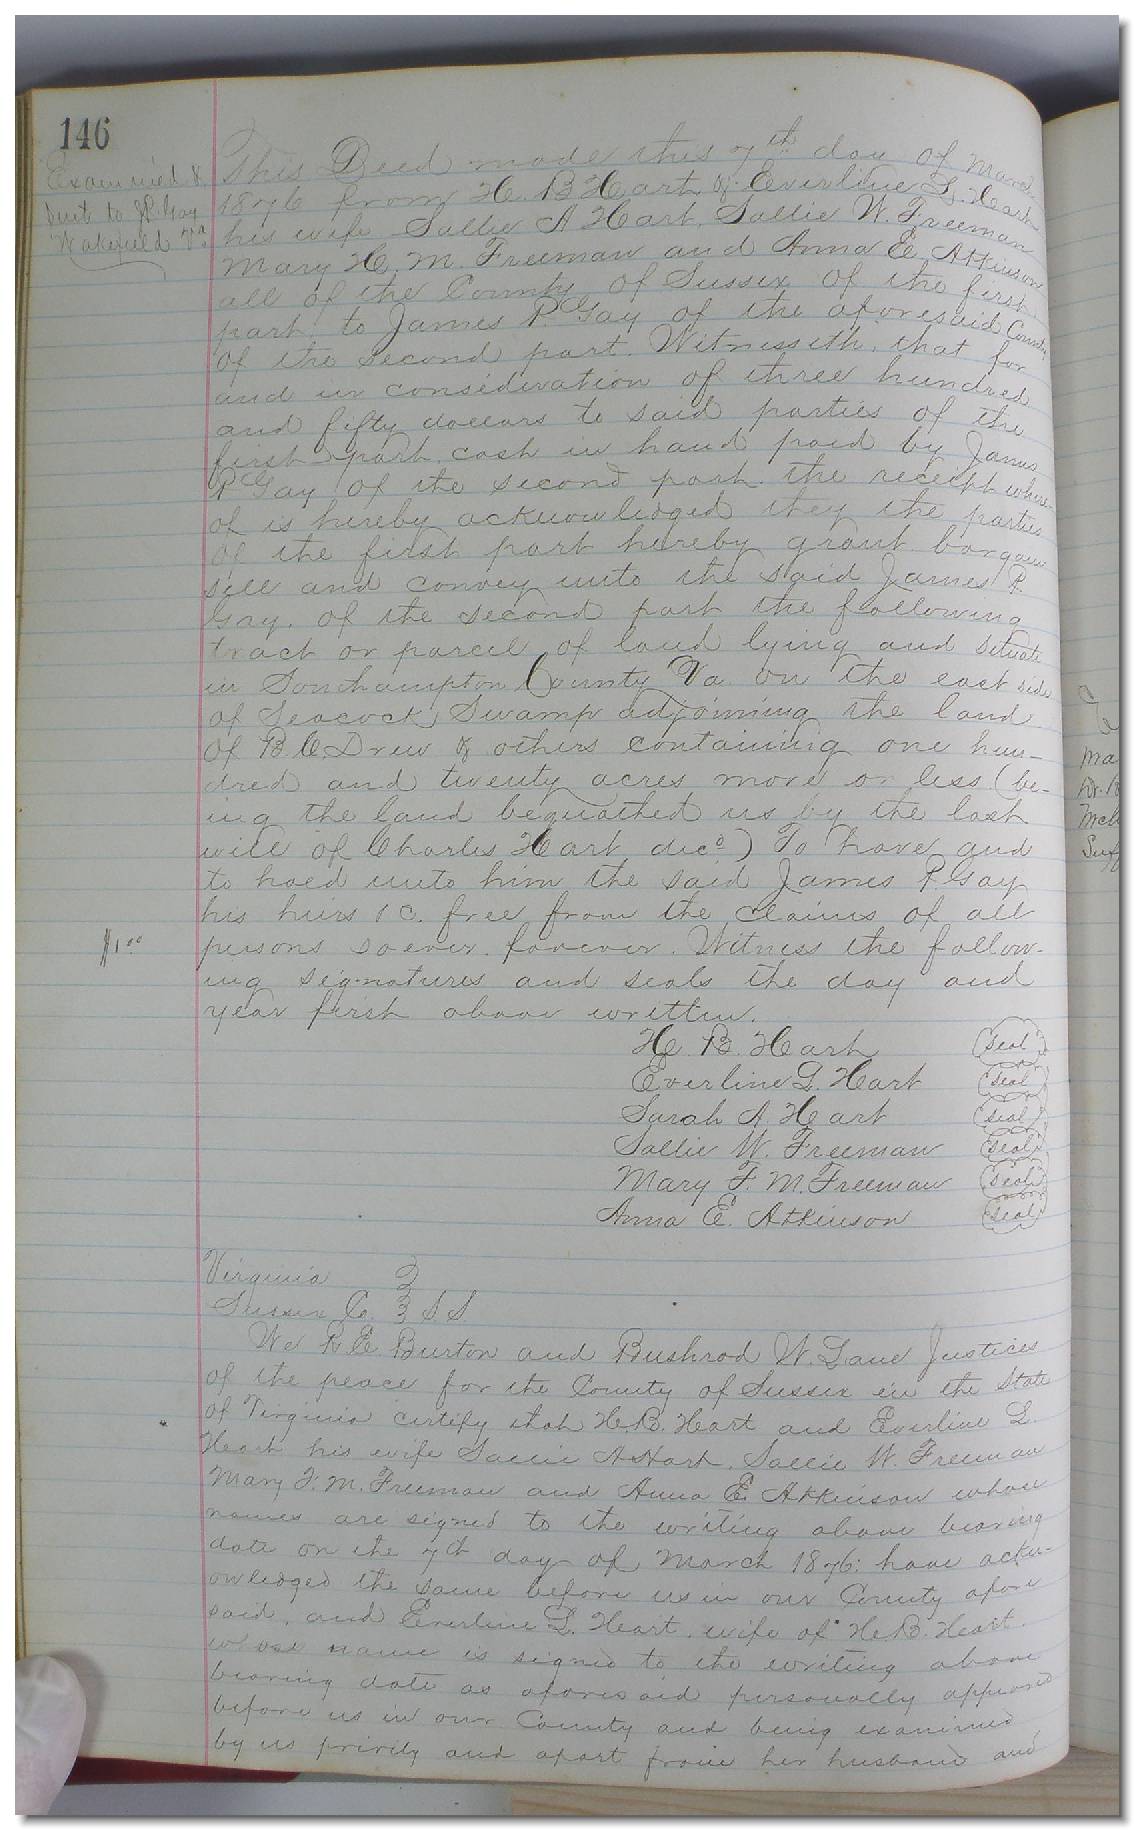 146
Examined &
sent to J.P. Gay
Wakefield Va
This Deed made this 7th day of March
1876 from H. B Hart & Everline L. Hart
his wife Sallie A Hart, Sallie W. Freeman
Mary H. M. Freeman and Anna E. Atkinson
all of the County of Sussex of the first
part, to James P. Gay of the aforesaid County
of the second part. Witnesseth, that for
and in consideration of three hundred
and fifty dollars to said parties of the
first part, cash in hand paid by James
P Gay of the second part the receipt where-
of is hereby acknowledged they the parties
of the first part hereby grant bargain
sell and convey unto the said James P.
Gay. of the second part the following
tract or parcel of land lying and situate
in Southampton County Va on the east side
of Seacock Swamp adjoining the land
of B. C. Drew & others containing one hun-
dred and twenty acres more or less (be-
ing the land bequathed us by the last
will of Charles Hart decd) To have and
to hold unto him the said James P. Gay
his heirs &c. free from the claims of all
$1.00
persons soever forever. Witness the follow-
ing signatures and seals the day and
year first above written.
H. B. Hart (seal)
Everline L. Hart (seal)
Sarah A Hart (seal)
Sallie W. Freeman (seal)
Mary F. M. Freeman (seal)
Anna E. Atkinson (seal)
Virginia
Sussex Co. S S
We R. E. Burton and Bushrod W. Lane Justices
of the peace for the County of Sussex in the State
of Virginia certify that H. B. Hart and Everline L.
Hart his wife Sallie A Hart, Sallie W. Freeman
Mary F. M. Freeman and Anna E. Atkinson whose
names are signed to the writing above bearing
date on the 7th day of March 1876: have ackn-
owledged the same before us in our County afore
said, and Everline L. Hart, wife of H. B. Hart.
whose name is signed to the writing above
bearing date as aforesaid personally appeared
before us in our County and being examined
by us privily and apart from her husband and